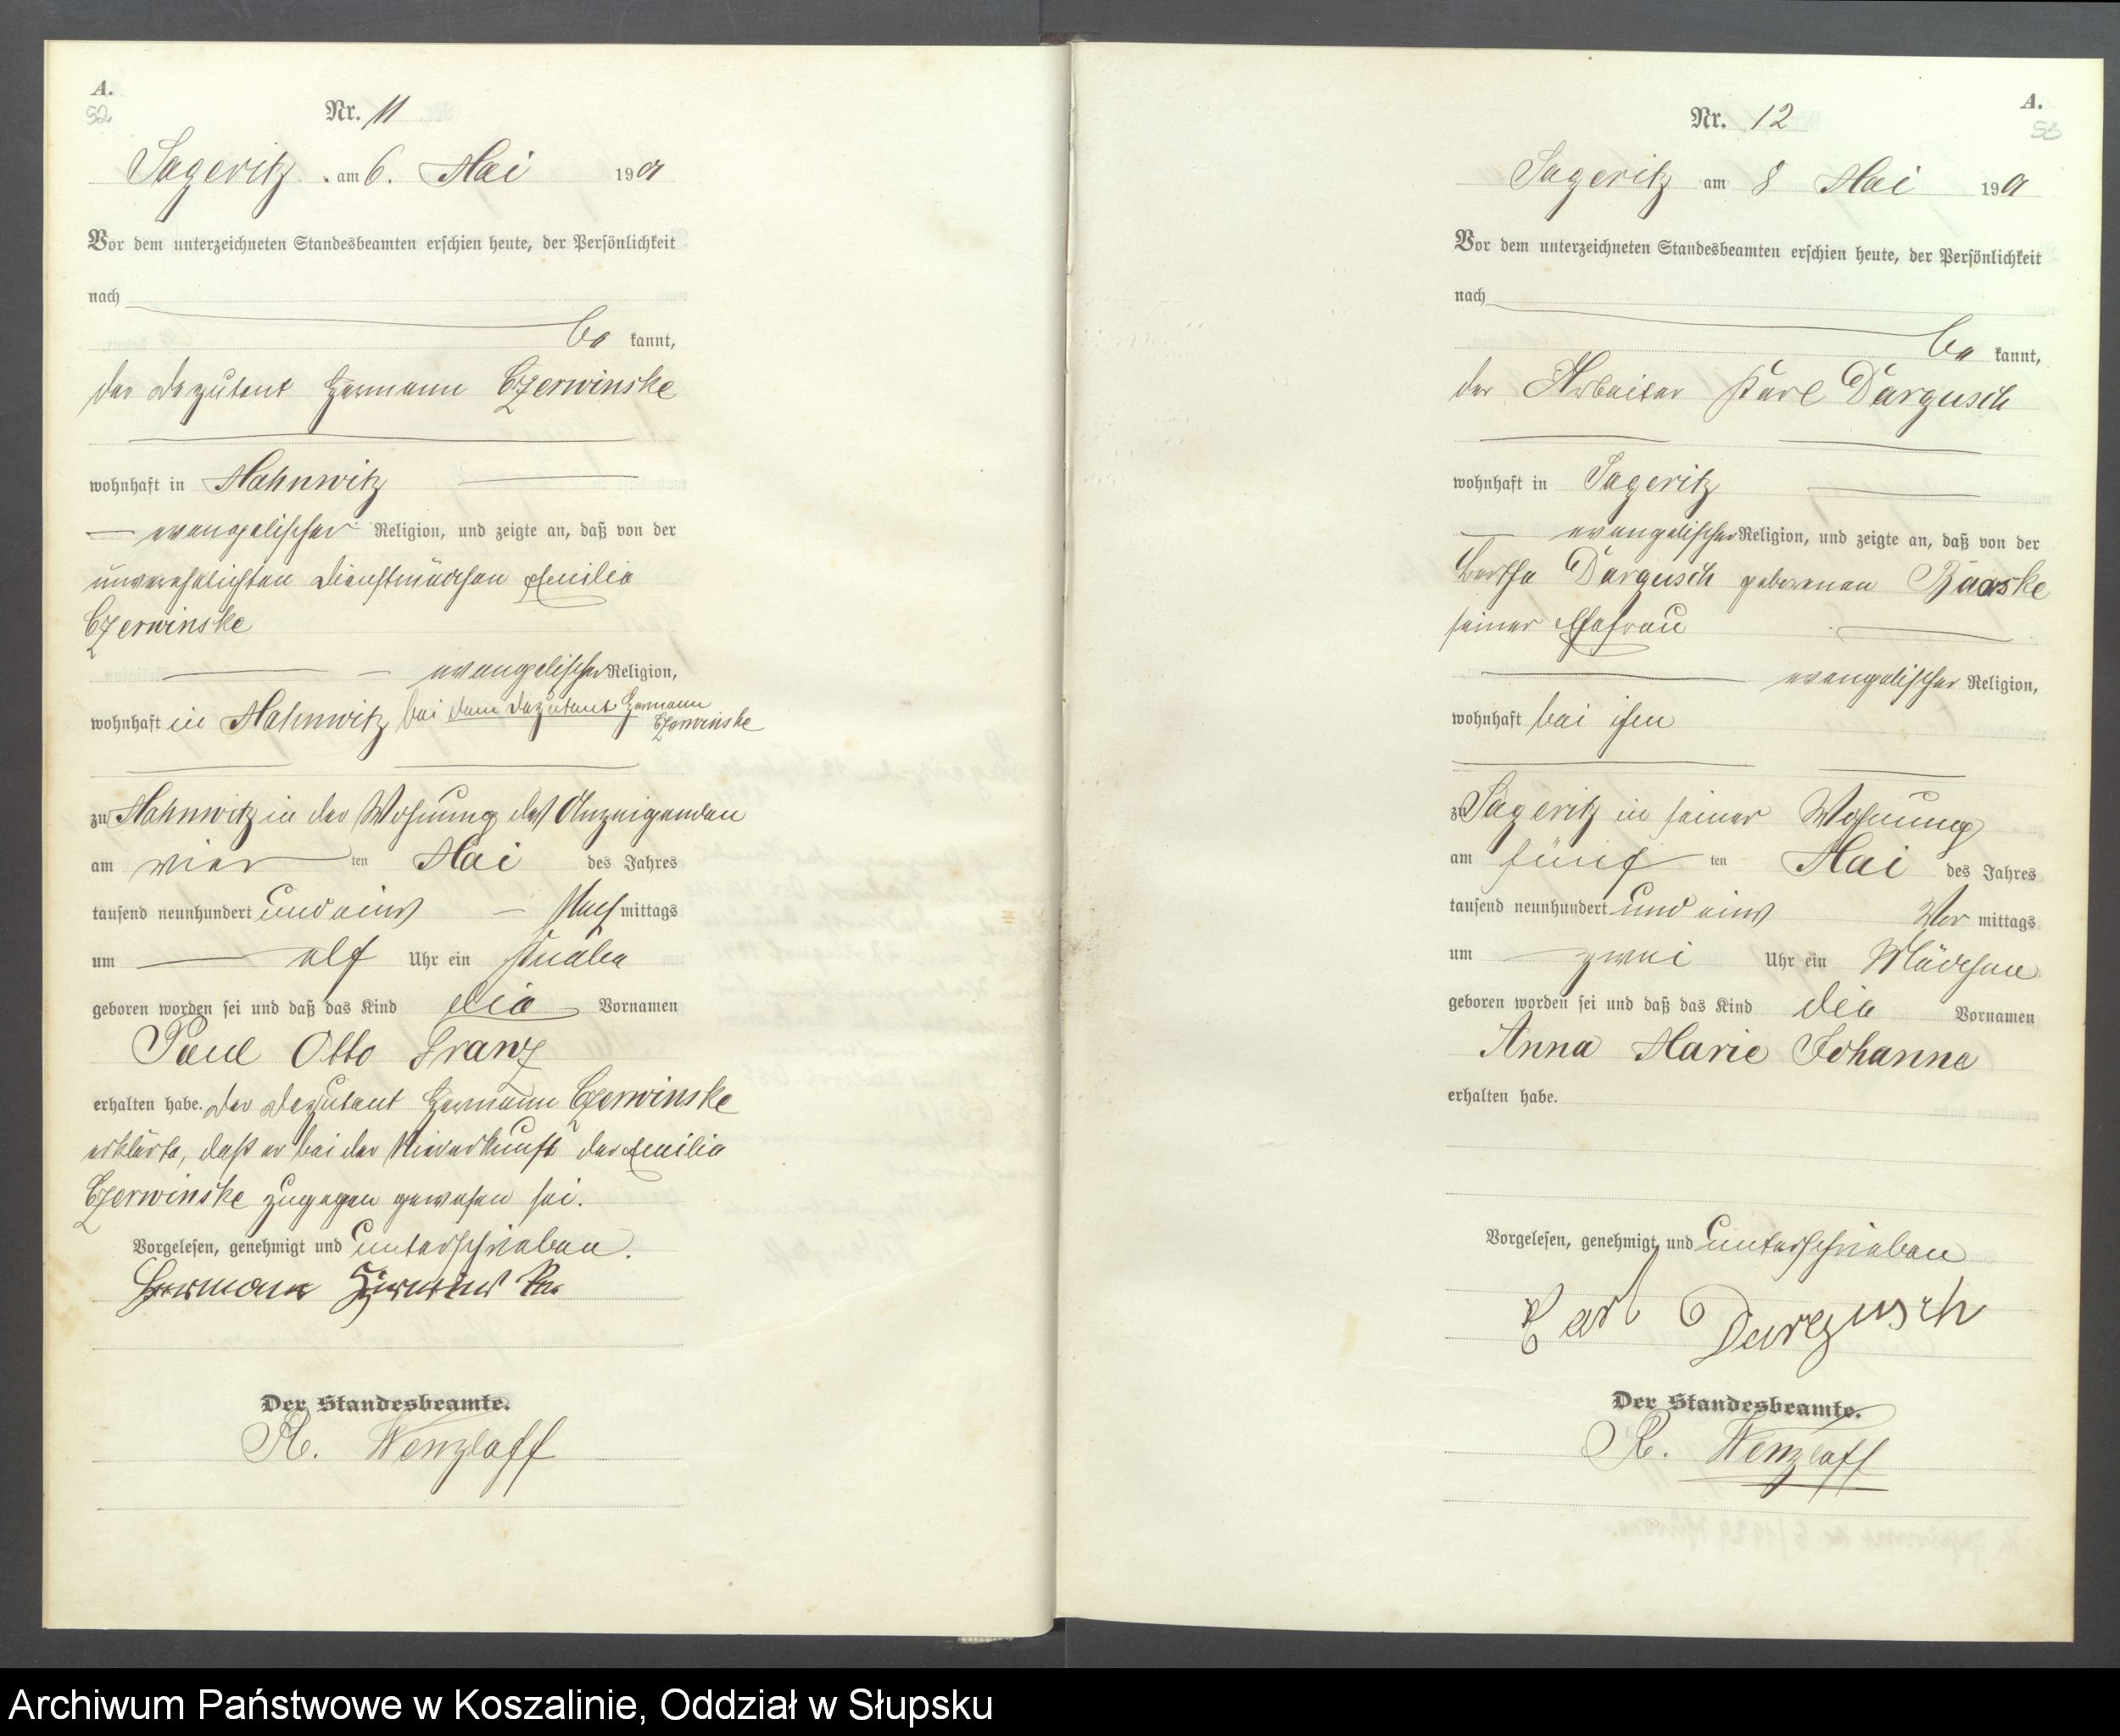 A.
52
Nr. 11
Sageritz am 6. Mai 1901
Vor dem unterzeichneten Standesbeamten erschien heute, der Persönlichkeit
nach
be kannt,
der Deputant Hermann Czerwinske
wohnhaft in Mahnwitz
evangelischer Religion, und zeigte an, daß von der
unverehelichten Dienstmädchen Emilie
Czerwinske
evangelischer Religion,
wohnhaft in Mahnwitz bei dem Deputant Hermann
Czerwinske
zu Mahnwitz in der Wohnung des Anzeigenden
am vier ten Mai des Jahres
tausend neunhundert und eins Nach mittags
um elf Uhr ein Knabe
geboren worden sei und daß das Kind die Vornamen
Paul Otto Franz
erhalten habe. Der Deputant Hermann Czerwinske
erklärte, daß er bei der Niederkunft der Emilie
Czerwinske zugegen gewesen sei.
Vorgelesen, genehmigt und unterschrieben.
Herman
Der Standesbeamte.
R. Wenzlaff
A.
53
Nr. 12
Sageritz am 8 Mai 1901
Vor dem unterzeichneten Standesbeamten erschien heute, der Persönlichkeit
nach
be kannt,
der Arbeiter Karl Dargusch
wohnhaft in Sageritz
evangelischer Religion, und zeigte an, daß von der
Bertha Dargusch geborenen Baaske
seiner Ehefrau
evangelischer Religion,
wohnhaft bei ihm
zu Sageritz in seiner Wohnung
am fünf ten Mai des Jahres
tausend neunhundert und eins Vor mittags
um zwei Uhr ein Mädchen
geboren worden sei und daß das Kind die Vornamen
Anna Marie Johanne
erhalten habe.
Vorgelesen, genehmigt und unterschrieben
Carl Dargusch
Der Standesbeamte.
R. Wenzlaff
Archiwum Państwowe w Koszalinie, Oddział w Słupsku